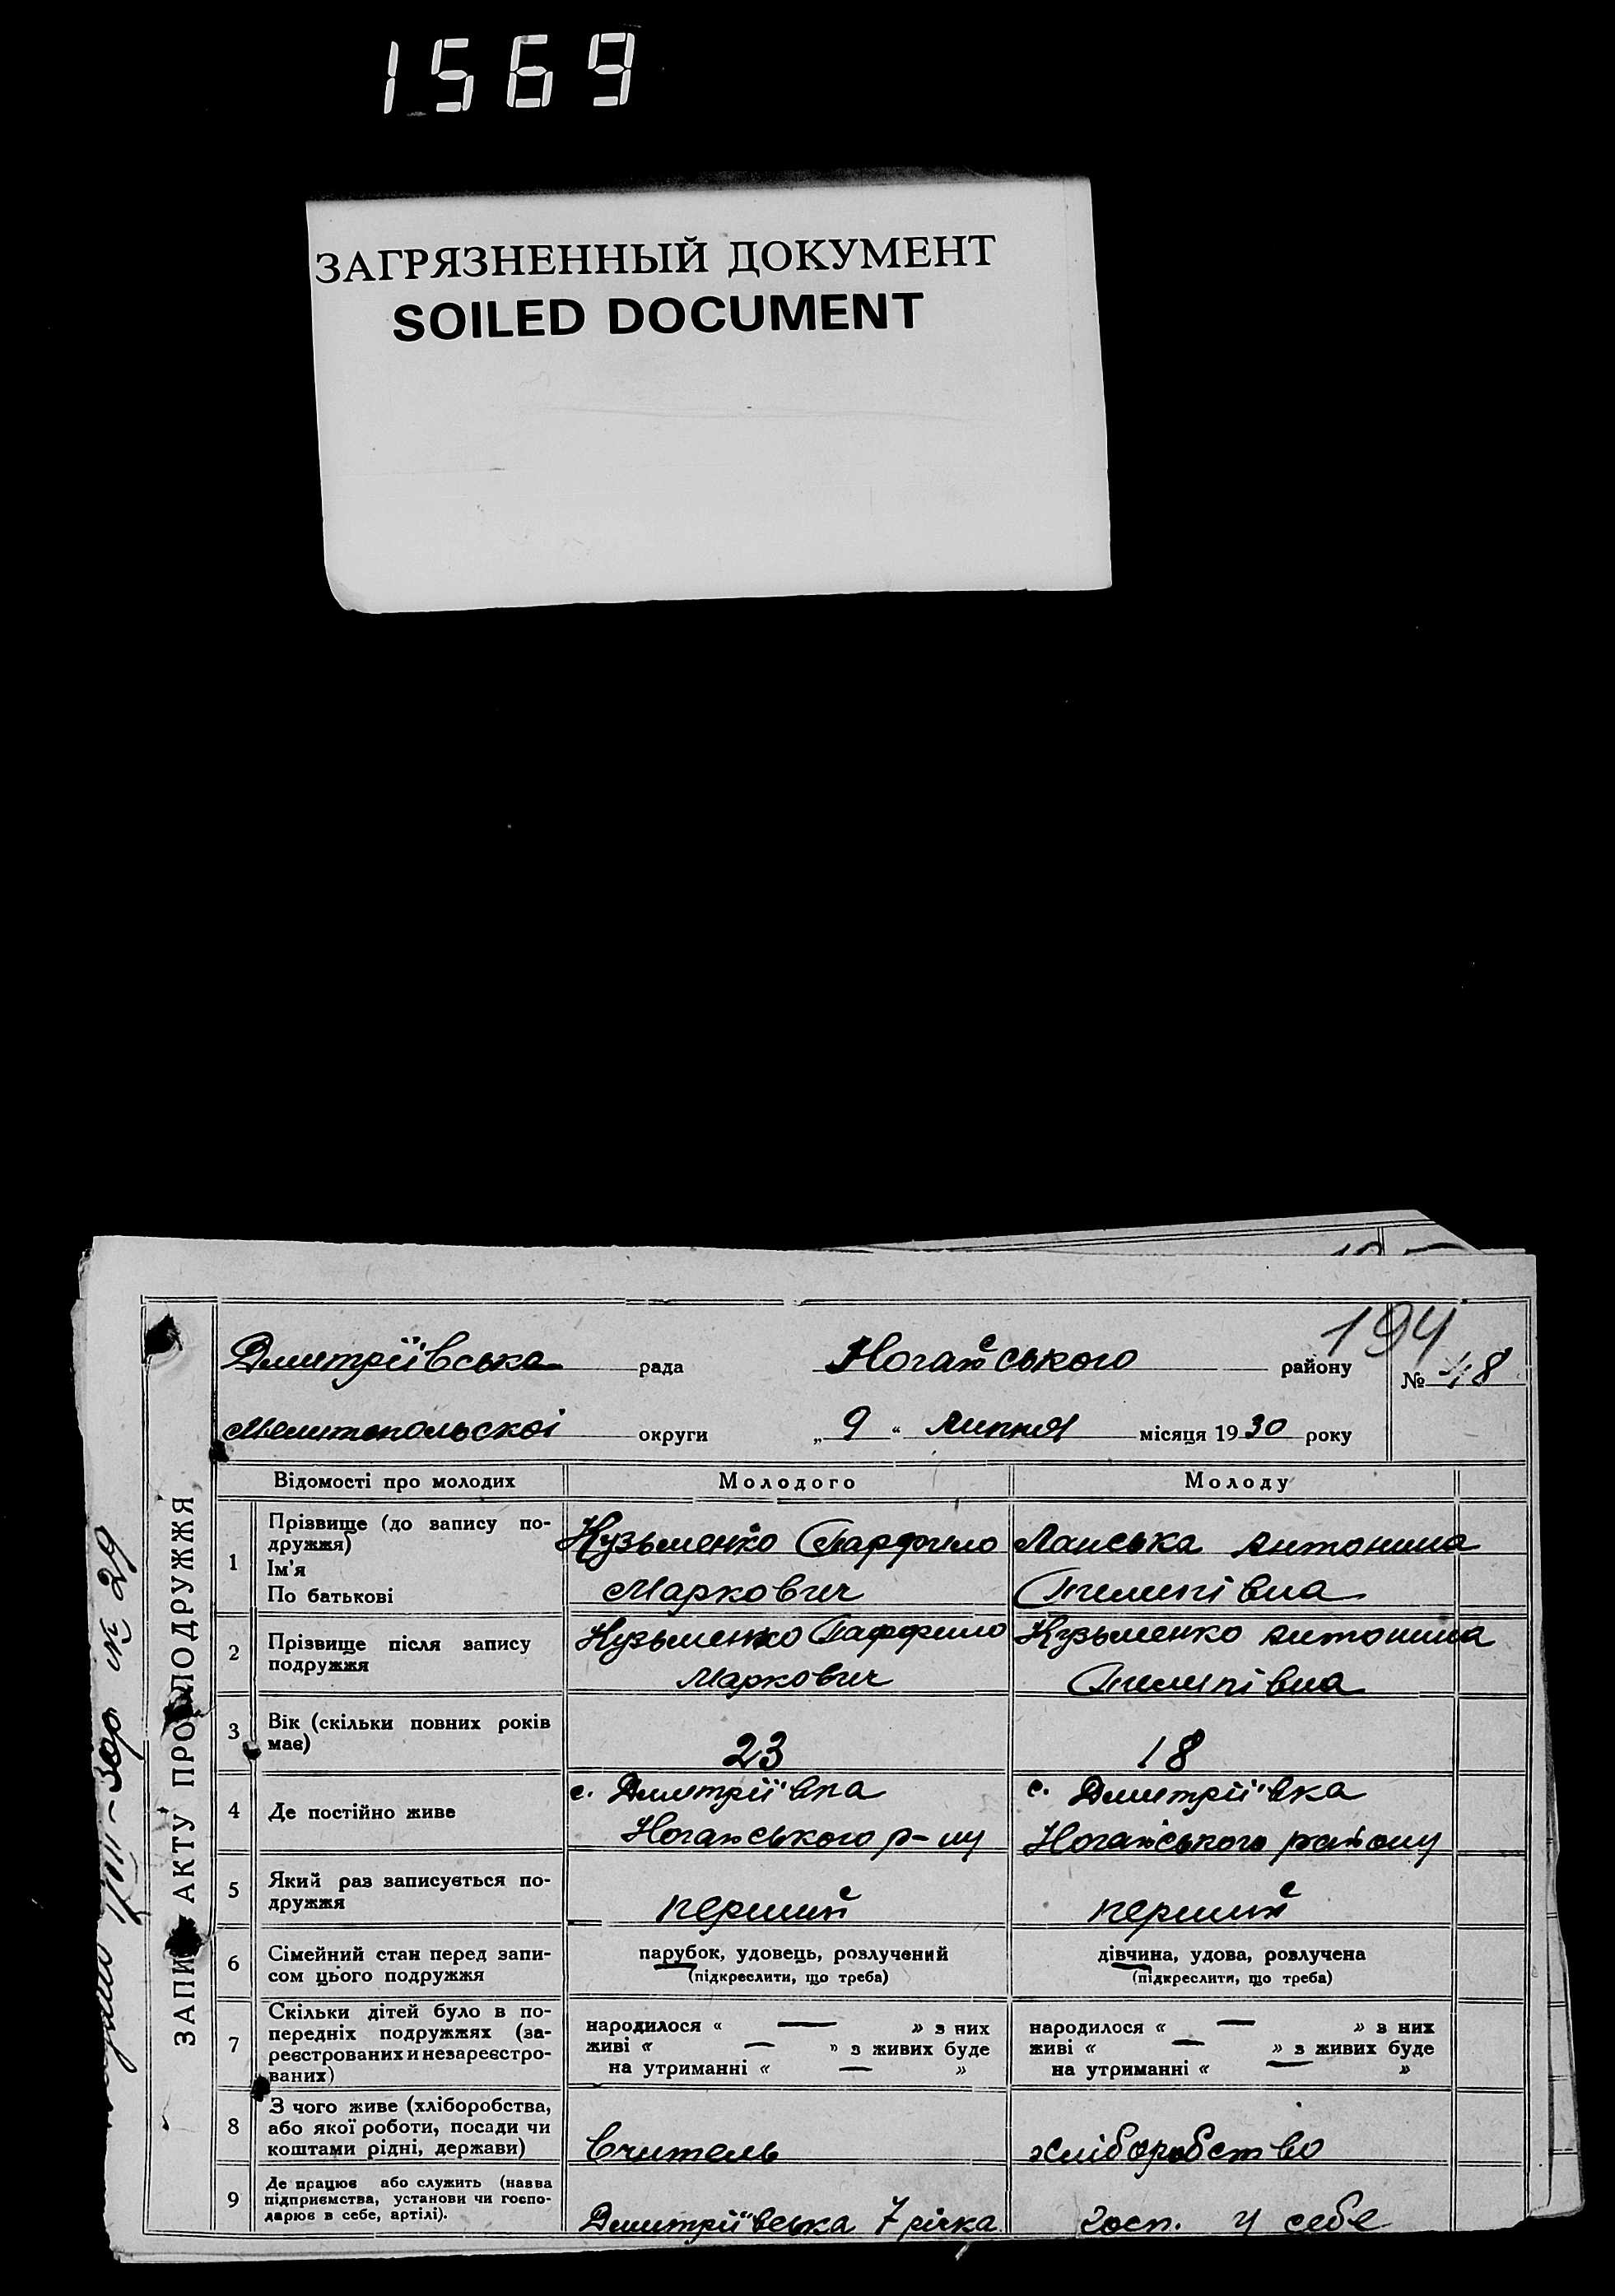 1569
ЗАГРЯЗНЕННЫЙ ДОКУМЕНТ
SOILED DOCUMENT
194
Дмитріївська рада Ногайського району № 48
Мелитопольскоі округи „ 9 “ липня місяця 1930 року
ЗАПИС АКТУ ПРО ПОДРУЖЖЯ
Відомості про молодих Молодого Молоду
1 Прізвище (до запису по-
дружжя)
Ім'я
По батькові
Кузьменко Парфило
Маркович
Ланська Антонина
Пилипівна
2 Прізвище після запису
подружжя
Кузьменко Парфило
Маркович
Кузьменко Антонина
Пилипівна
3 Вік (скільки повних років
має)
23
18
4 Де постійно живе
с. Дмитріївка
Ногайського р-ну
с. Дмитріївка
Ногайського району
5 Який раз записується по-
дружжя
перший
перший
6 Сімейний стан перед запи-
сом цього подружжя
парубок, удовець, розлучений
(підкреслити, що треба)
дівчина, удова, розлучена
(підкреслити, що треба)
7 Скільки дітей було в по-
передніх подружжях (за-
реєстрованих и незареєстро-
ваних)
народилося « — » з них
живі « — » з живих буде
на утриманні « — »
народилося « — » з них
живі « — » з живих буде
на утриманні « — »
8 З чого живе (хліборобства,
або якої роботи, посади чи
коштами рідні, держави)
Вчитель
хліборобство
9 Де працює або служить (назва
підприємства, установи чи госпо-
дарює в себе, артілі).
Дмитріївська 7 річка
госп. у себе